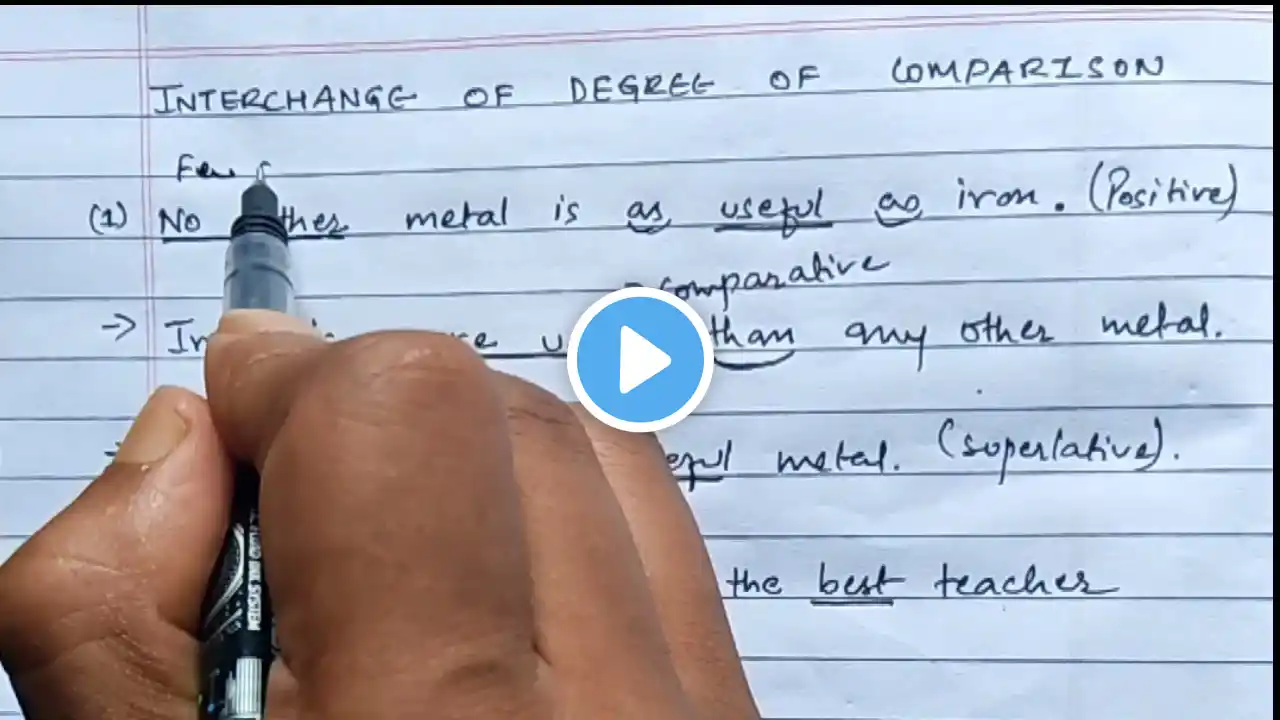 INTERCHANGE OF DEGREE OF COMPARISON
Few
(1) No other metal is as useful as iron. (Positive)
comparative
→ than any other metal.
metal. (superlative).
the best teacher